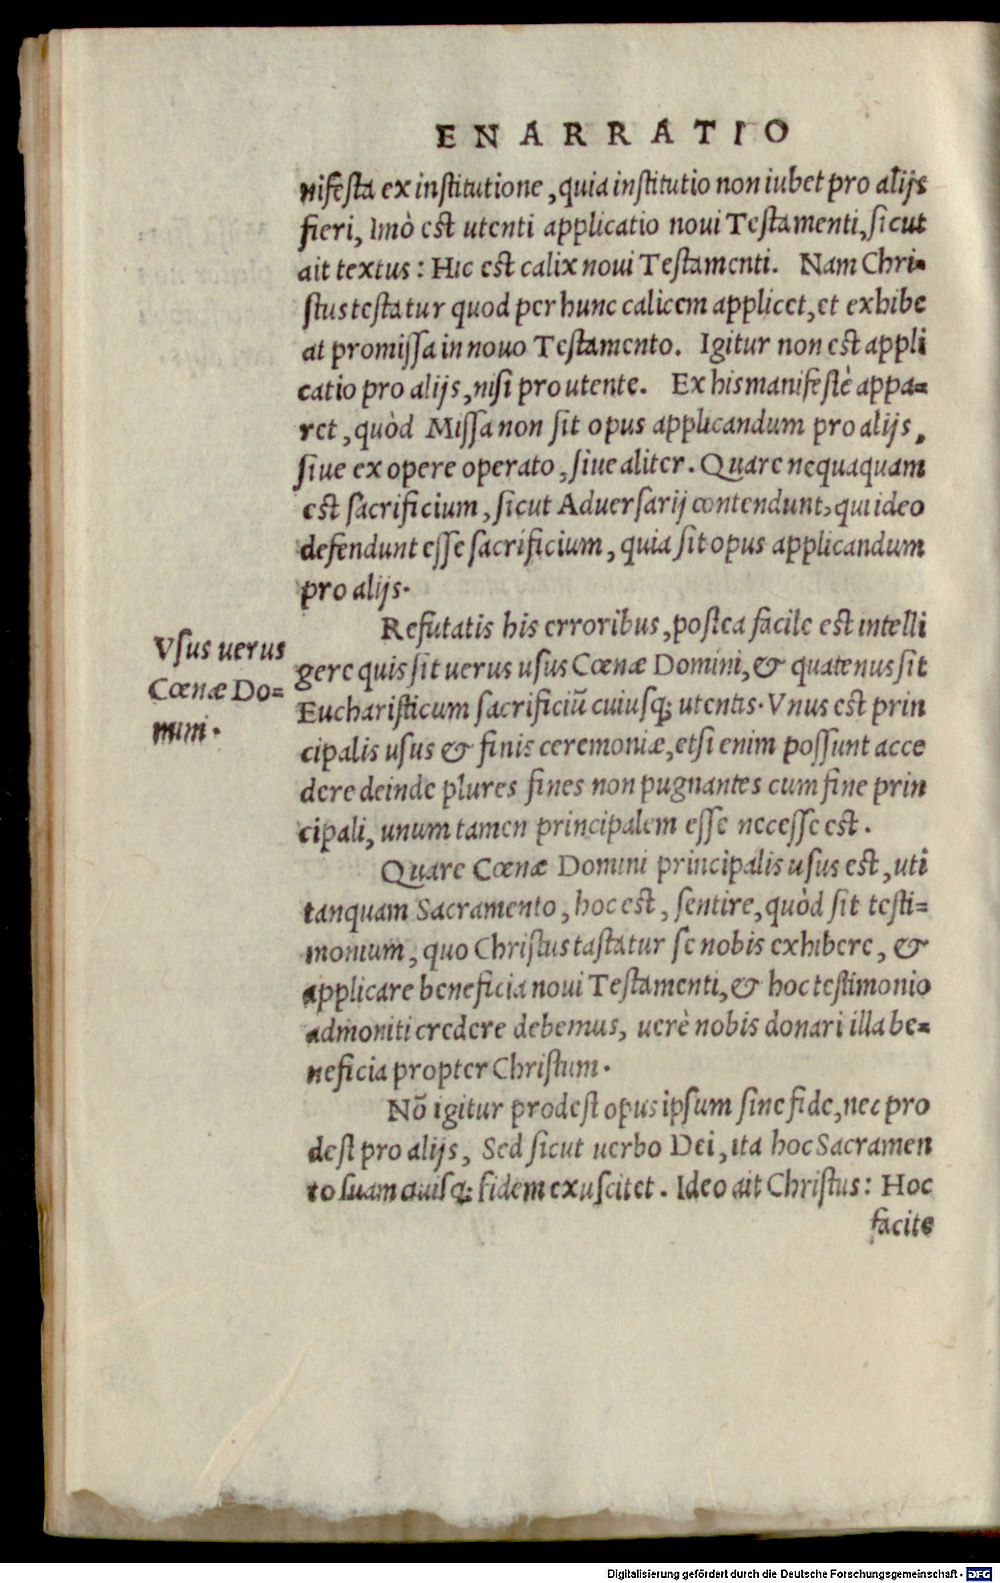 ENARRATIO
nifesta ex institutione, quia institutio non iubet pro alijs
fieri, Imò est utenti applicatio noui Testamenti, sicut
ait textus: Hic est calix noui Testamenti. Nam Chri-
stus testatur quod per hunc calicem applicet, et exhibe
at promissa in nouo Testamento. Igitur non est appli
catio pro alijs, nisi pro utente. Ex his manifestè appa=
ret, quòd Missa non sit opus applicandum pro alijs,
siue ex opere operato, siue aliter. Quare nequaquam
est sacrificium, sicut Aduersarij contendunt, qui ideo
defendunt esse sacrificium, quia sit opus applicandum
pro alijs.
Vsus uerus
Cœnæ Do=
mini.
Refutatis his erroribus, postea facile est intelli
gere quis sit uerus usus Cœnæ Domini, & quatenus sit
Eucharisticum sacrificiũ cuiusq; utentis. Vnus est prin
cipalis usus & finis ceremoniæ, etsi enim possunt acce
dere deinde plures fines non pugnantes cum fine prin
cipali, unum tamen principalem esse necesse est.
Quare Cœnæ Domini principalis usus est, uti
tanquam Sacramento, hoc est, sentire, quòd sit testi=
monium, quo Christus tastatur se nobis exhibere, &
applicare beneficia noui Testamenti, & hoc testimonio
admoniti credere debemus, uerè nobis donari illa be=
neficia propter Christum.
Nõ igitur prodest opus ipsum sine fide, nec pro
dest pro alijs, Sed sicut uerbo Dei, ita hoc Sacramen
to suam quisq; fidem exuscitet. Ideo ait Christus: Hoc
facite
Digitalisierung gefördert durch die Deutsche Forschungsgemeinschaft - DFG